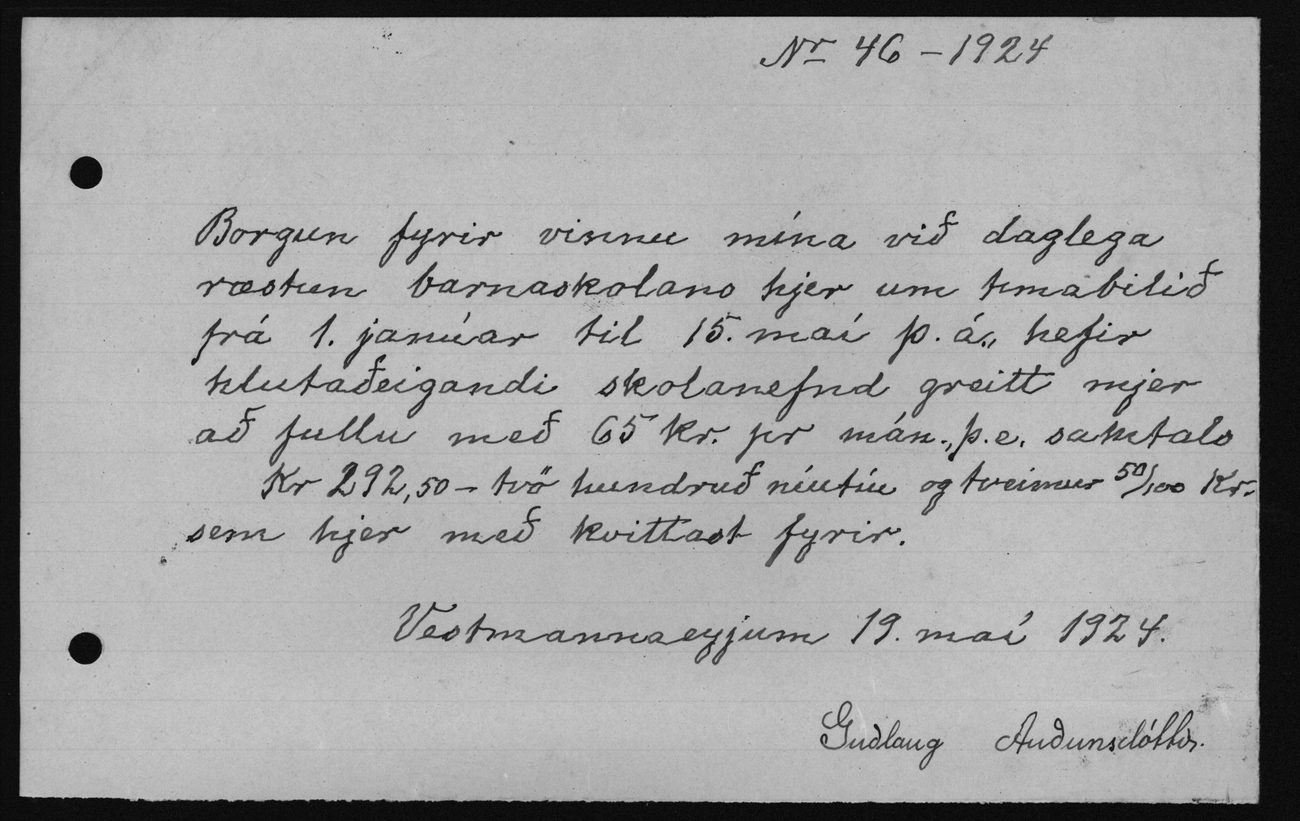 Nr 46 – 1924
Borgun fyrir vinnu mína við daglega
ræstun barnaskolans hjer um tímabilið
frá 1. janúar til 15. maí þ. á., hefir
hlutaðeigandi skolanefnd greitt mjer
að fullu með 65 kr. pr mán., þ.e. samtals
Kr 292,50 – tvö hundruð níutíu og tveimur 50/100 Kr.
sem hjer með kvittast fyrir.
Vestmannaeyjum 19. maí 1924.
Guðlaug Auðunsdóttir.